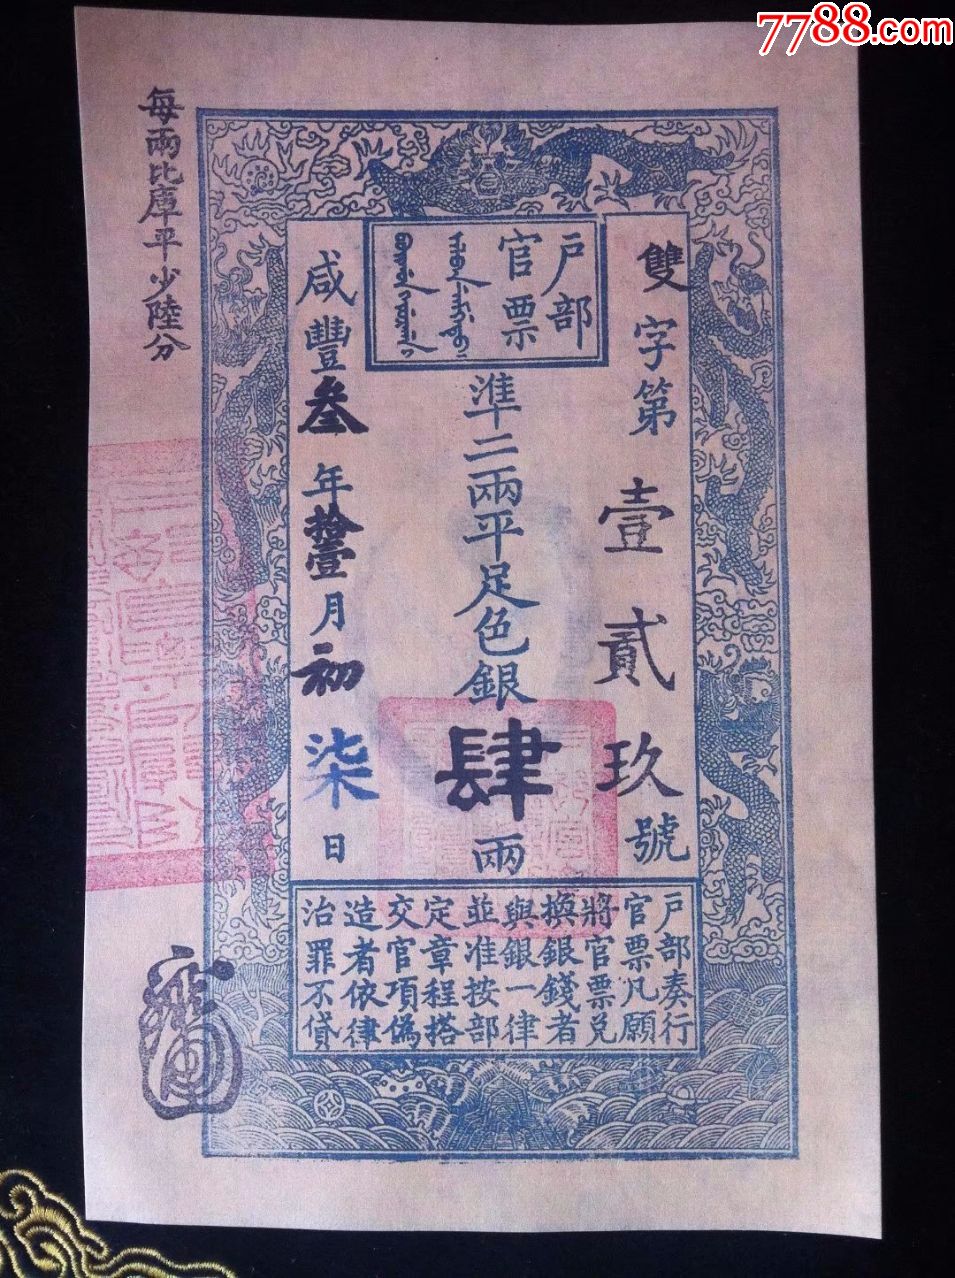 7788.com
戶部
官票
雙字第壹貳玖號
準二兩平足色銀肆兩
咸豐叁年拾壹月初柒日
每兩比庫平少陸分
戶部奏行
官票凡願
將官票兌
換銀錢者
與銀一律
並准按部
定章程搭
交官項偽
造者依律
治罪不貸